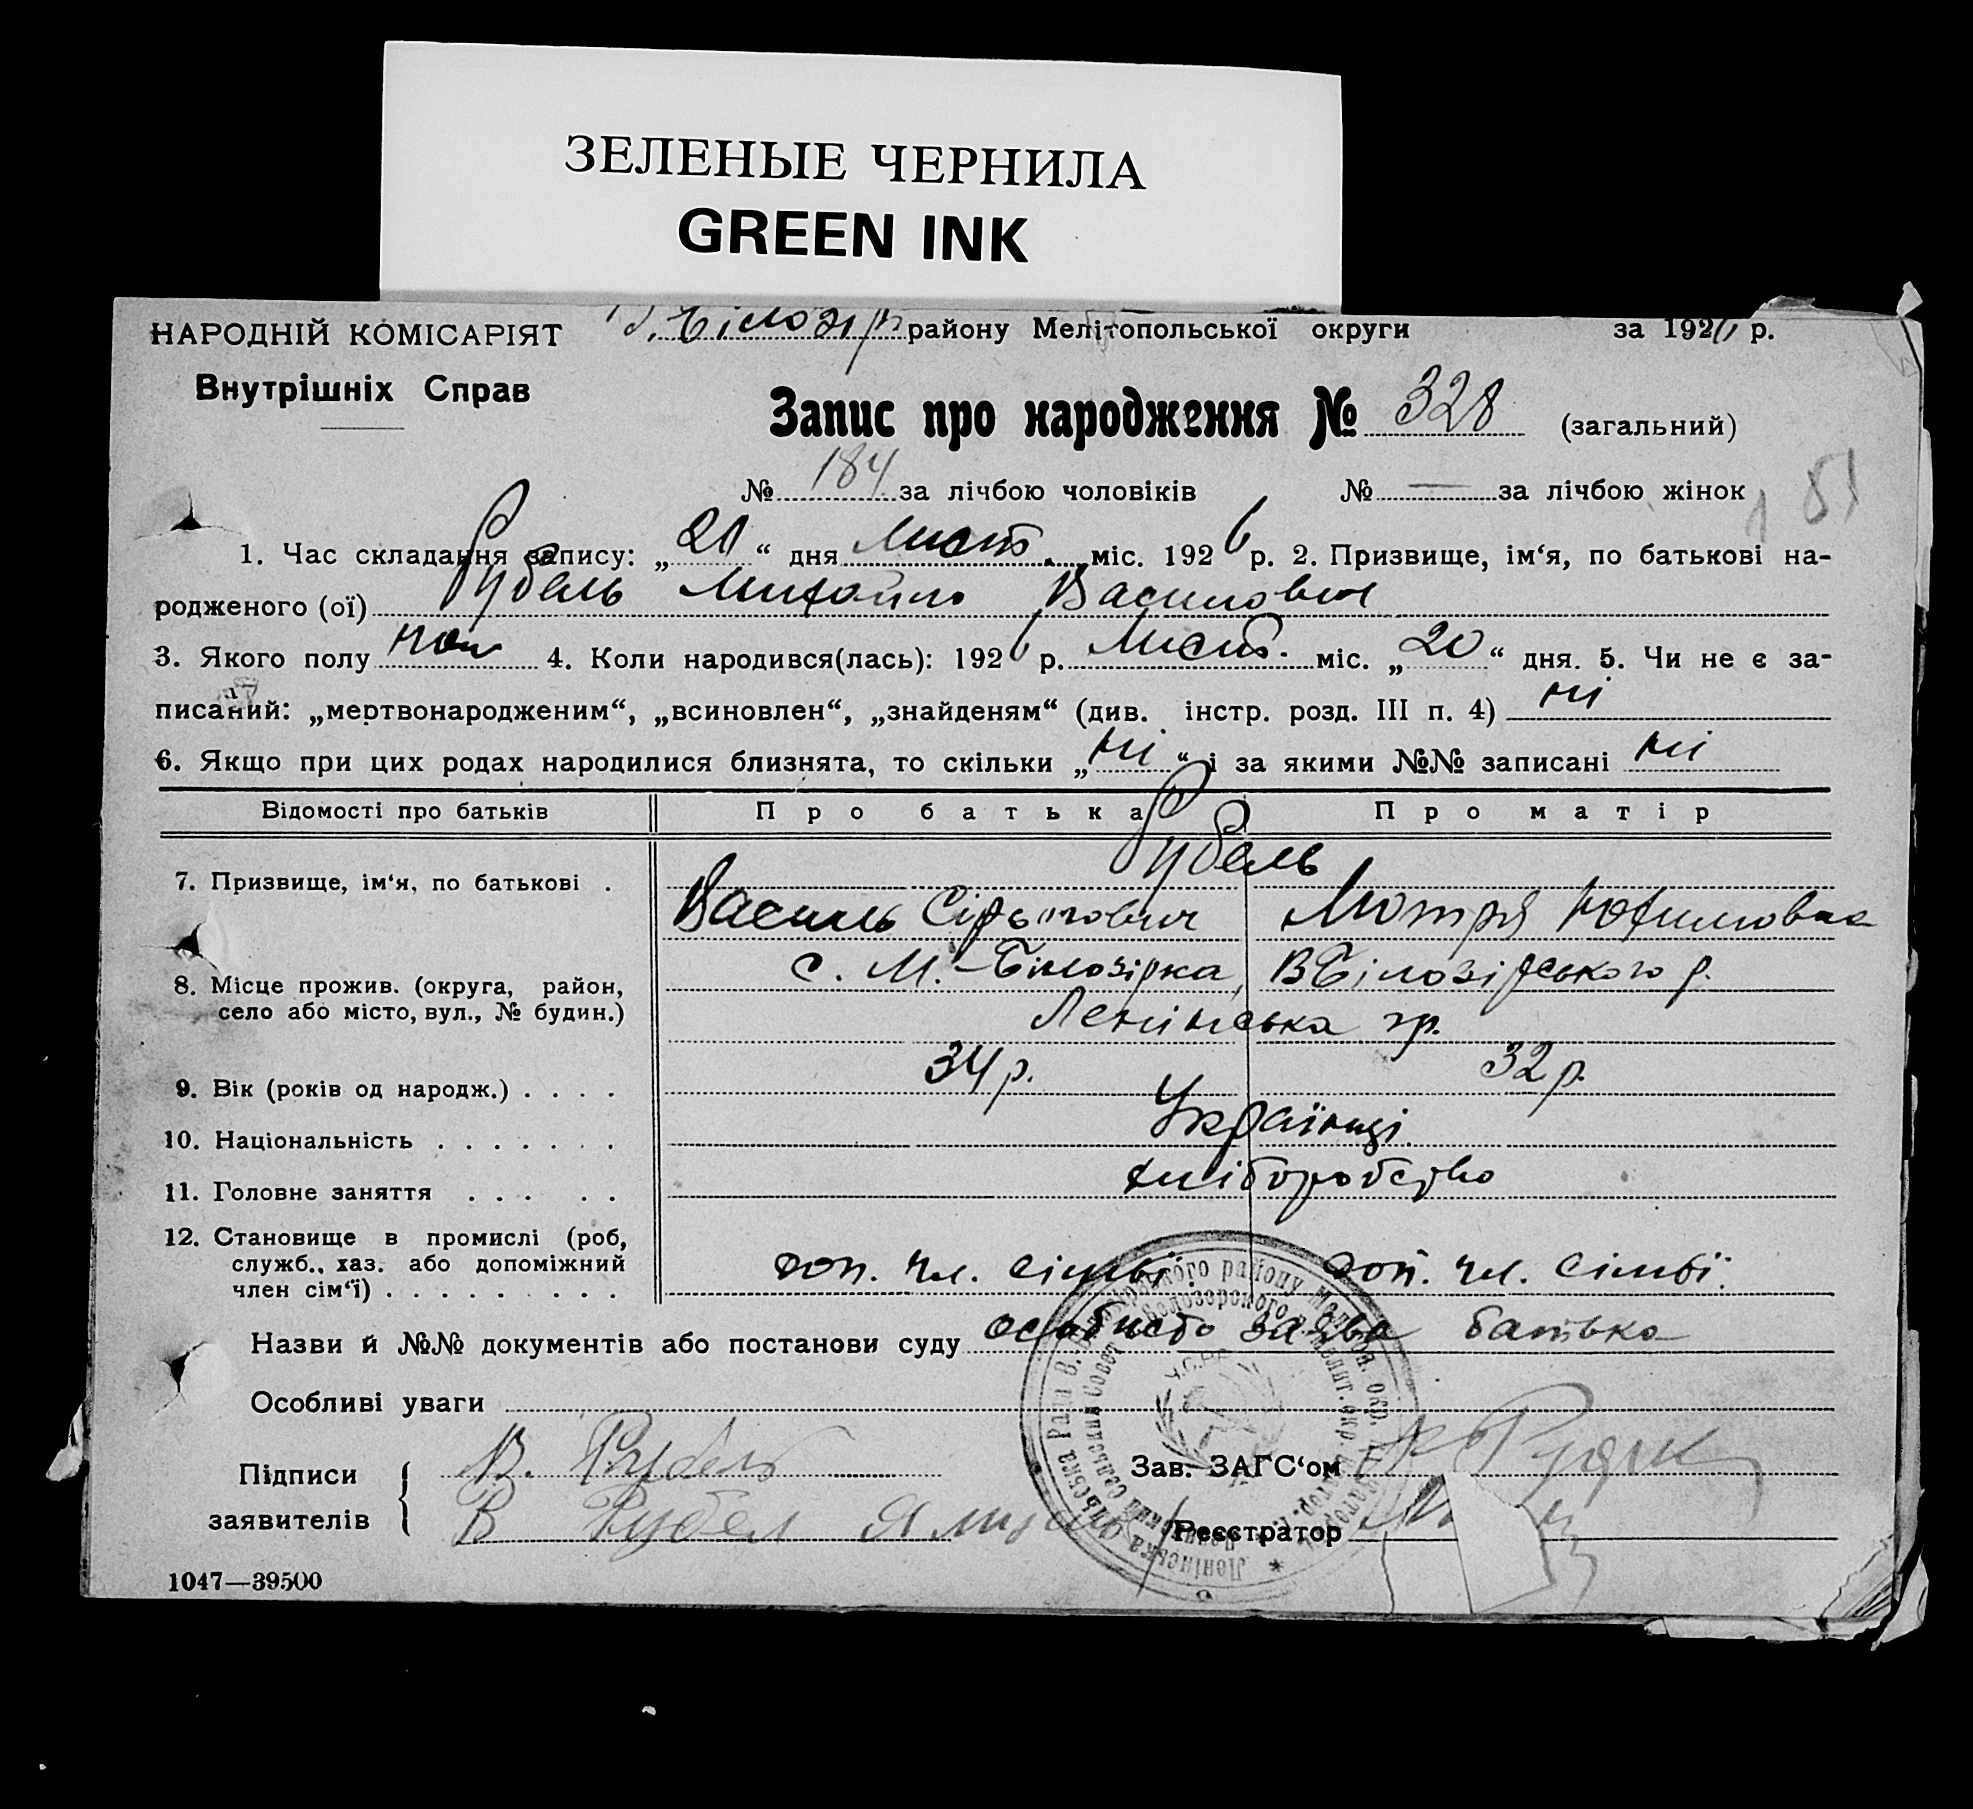 ЗЕЛЕНЫЕ ЧЕРНИЛА
GREEN INK
НАРОДНІЙ КОМІСАРІЯТ
Внутрішніх Справ
В. Білозір району Мелітопольської округи за 1926 р.
Запис про народження № 328 (загальний)
№ 184 за лічбою чоловіків № — за лічбою жінок
1. Час складання запису: „21“ дня Лист. міс. 1926 р. 2. Призвище, ім‘я, по батькові на-
родженого (ої) Рубель Михайло Василович
3. Якого полу чол 4. Коли народився(лась): 1926 р. Лист. міс. „20“ дня. 5. Чи не є за-
писаний: „мертвонародженим“, „всиновлен“, „знайденям“ (див. інстр. розд. III п. 4) ні
6. Якщо при цих родах народилися близнята, то скільки „ні“ і за якими №№ записані ні
Відомості про батьків Про батька Про матір
Рубель
7. Призвище, ім‘я, по батькові .
Василь Сірьогович Мотря Юхимовна
8. Місце прожив. (округа, район, село або місто, вул., № будин.)
с. М.-Білозірка, ВБілозірського р.
Ленінська гр.
9. Вік (років од народж.) . . . . 34 р. 32 р.
10. Національність . . . . . . . Українці
11. Головне заняття . . . . . хліборобство
12. Становище в промислі (роб, служб., хаз. або допоміжний член сім‘ї) . . . . . . . . .
доп. чл. сімьї доп. чл. сімьї.
Назви й №№ документів або постанови суду особисто заява батька
Особливі уваги
Підписи заявителів
В. Рубель
В Рубел
Зав. ЗАГС‘ом
Реєстратор
1047—39500